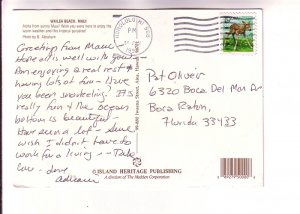 WAILEA BEACH, MAUI
Aloha from sunny Maui! Wish you were here to enjoy the
warm weather and this tropical paradise!
Photo by B. Abraham
HONOLULU HI
PM
Greetings from Maui
Hope all is well with you -
I'm enjoying a real rest &
having lots of fun - Have
you been snorkeling? It's
really fun & the ocean
bottom is beautiful -
Have seen a lot - Sure
wish I didn't have to
work for a living -- Take
care - Love
Pat Oliver
6320 Boca Del Mar
Boca Raton,
Florida 33433
ISLAND HERITAGE PUBLISHING
A division of The Madden Corporation